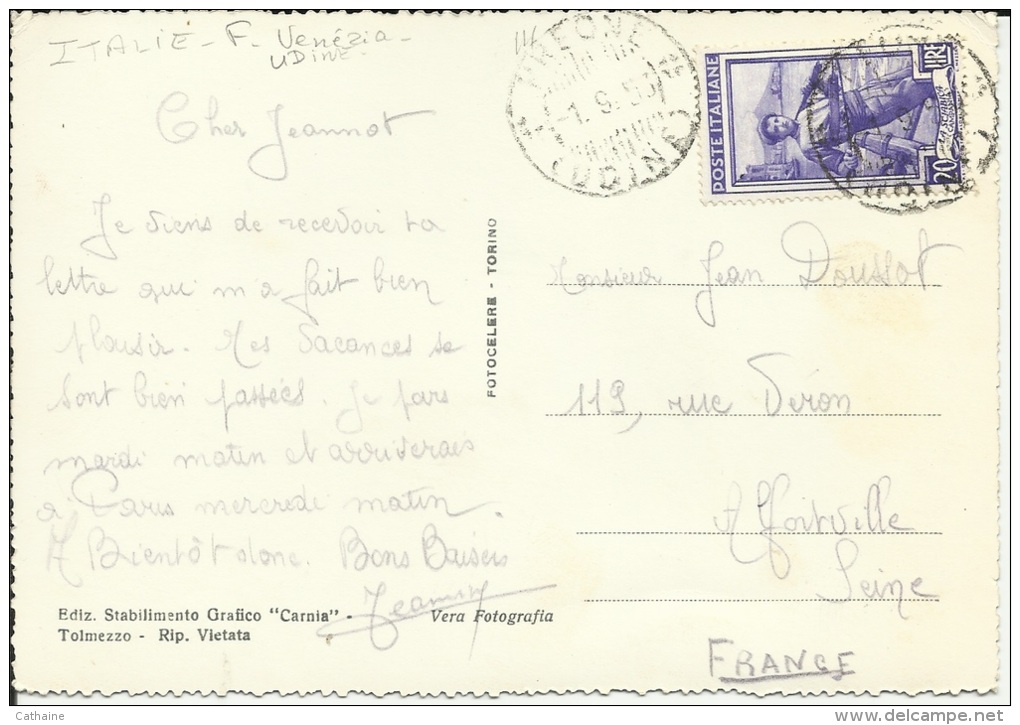 ITALIE - F. Venézia -
UDINE
Cher Jeannot
Je viens de recevoir ta
lettre qui m'a fait bien
plaisir. Mes vacances se
sont bien passées. Je pars
mardi matin et arriverais
à Paris mercredi matin.
A Bientôt donc. Bons Baisers
Ediz. Stabilimento Grafico "Carnia" -
Tolmezzo - Rip. Vietata
Vera Fotografia
FOTOCELERE - TORINO
-1.9.53
UDINE
POSTE ITALIANE
LIRE
20
Monsieur Jean Doussot
119, rue Véron
Alfortville
Seine
FRANCE
Cathaine
www.delcampe.net